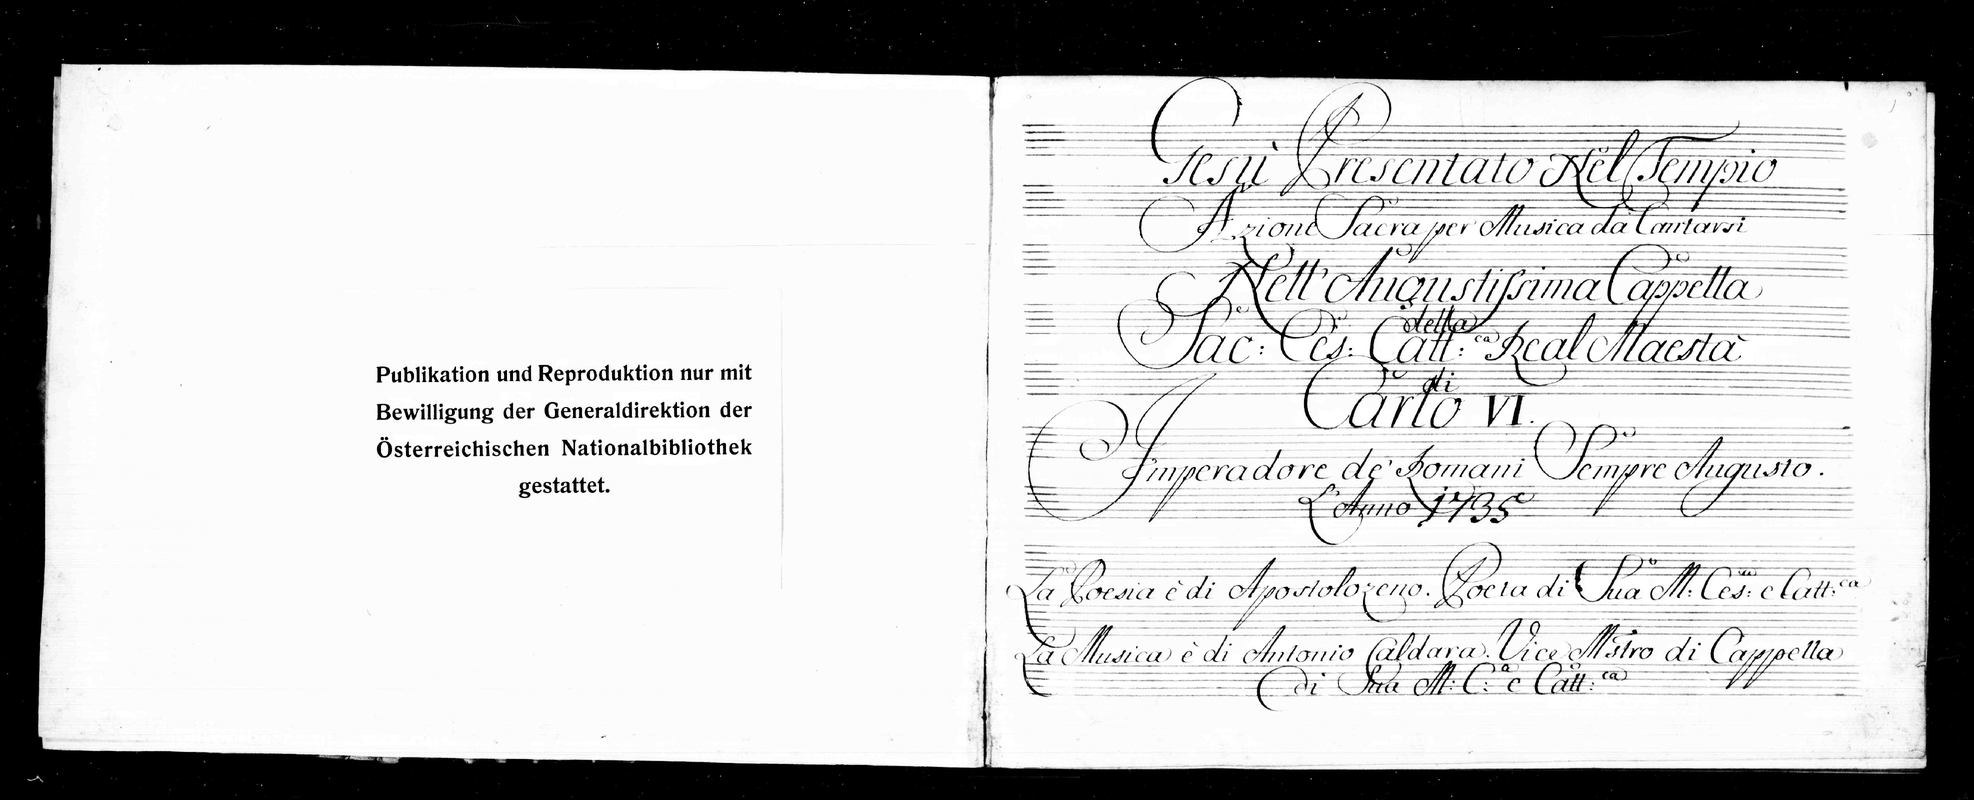 Publikation und Reproduktion nur mit
Bewilligung der Generaldirektion der
Österreichischen Nationalbibliothek
gestattet.
Gesù Presentato Nel Tempio
Azione Sacra per Musica da Cantarsi
Nell' Augustissima Cappella
della
Sac: Ces: Catt:ca Real Maestà
di
Carlo VI.
Imperadore de' Romani Sempre Augusto.
L'Anno 1735
La Poesia è di Apostolo Zeno. Poeta di Sua M: Ces:a e Catt:ca
La Musica è di Antonio Caldara. Vice Mstro di Cappella
di Sua M: C:a e Catt:ca